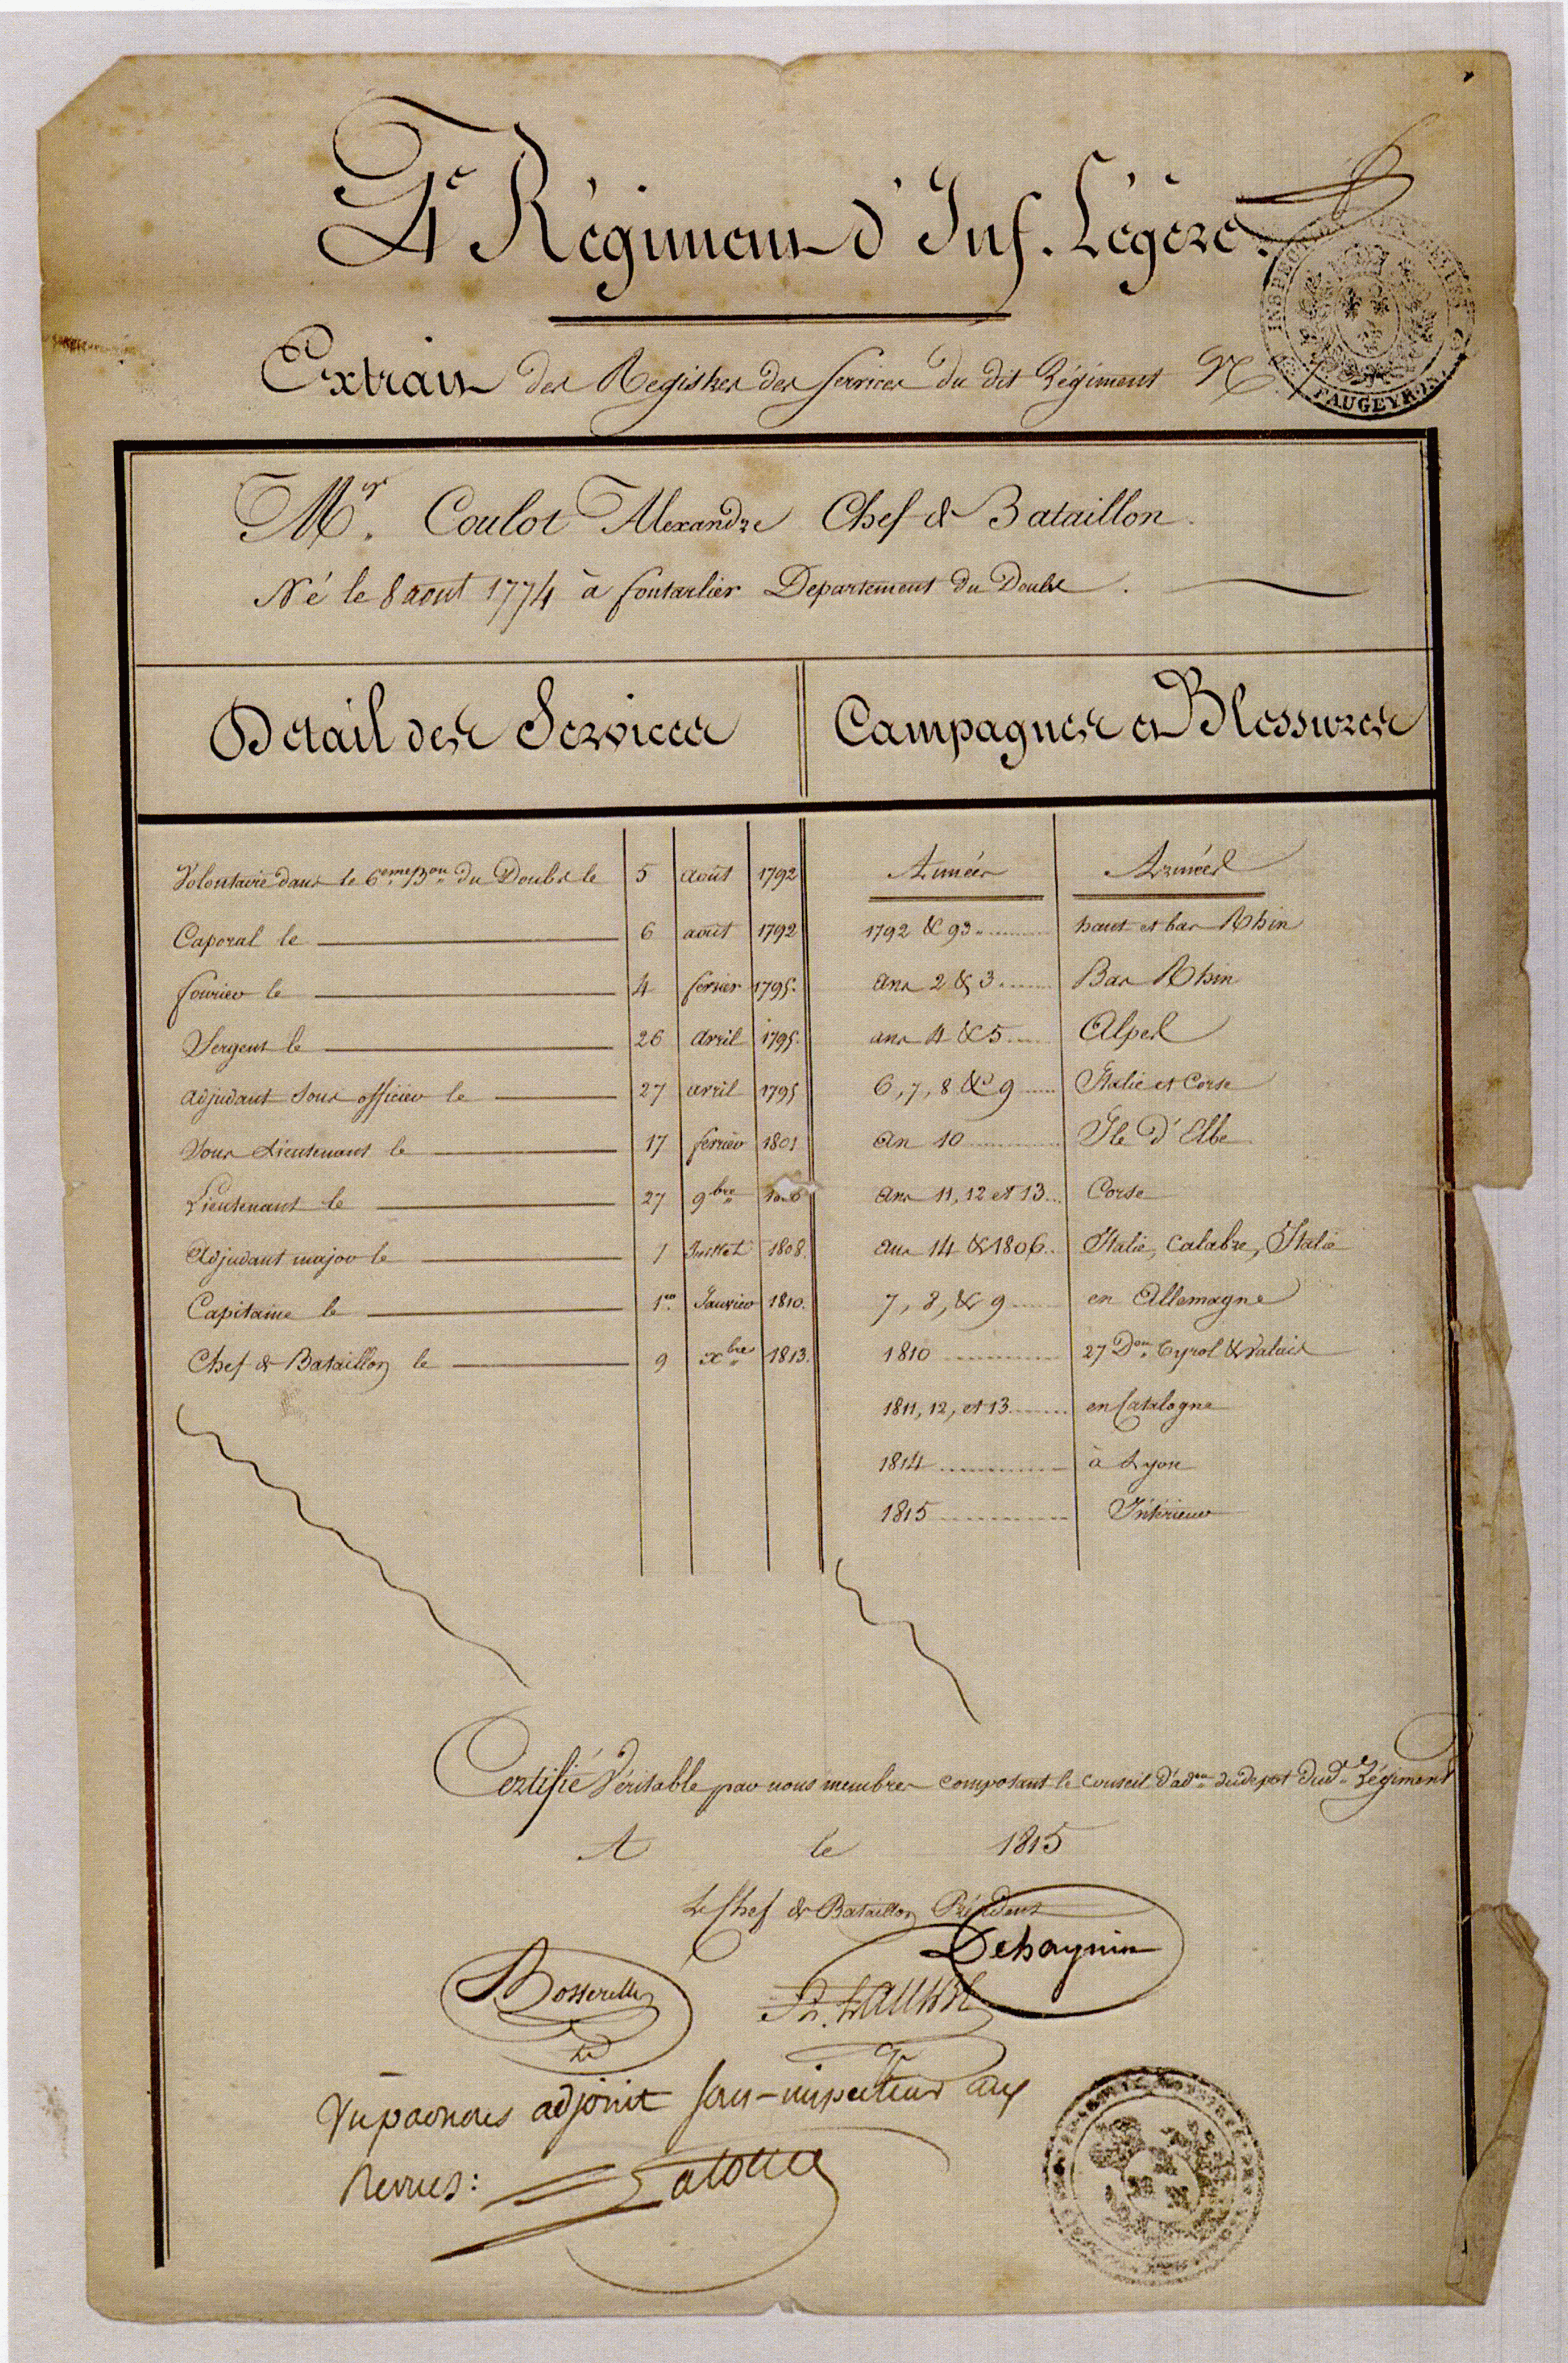 4e Régiment d'Inf. Légère.
Extrait des Registres des Services du dit Régiment N
FAUGEYROU
Mr. Coulot Alexandre Chef de Bataillon
Né le 8 aout 1774 à Pontarlier Departement du Doubs.
Détail des Services
Campagnes et Blessures
Volontaire dans le 6eme Bon du Doubs le 5 août 1792
Caporal le 6 août 1792
fourier le 4 fevrier 1795.
Sergent le 26 avril 1795.
adjudant Sous officier le 27 avril 1795
Sous Lieutenant le 17 fevrier 1801
Lieutenant le 27 9bre
Adjudant major le 1 Juillet 1808.
Capitaine le 1er Janvier 1810.
Chef de Bataillon le 9 xbre 1813.
Années Armées
1792 & 93 haut et bas Rhin
ans 2 & 3 Bas Rhin
ans 4 & 5 Alpes
6, 7, 8 & 9 Italie et Corse
an 10 Ile d'Elbe
ans 11, 12 et 13 Corse
ans 14 & 1806 Italie, Calabre, Italie
7, 8, & 9 en Allemagne
1810 27 Don Tyrol & Valais
1811, 12, et 13 en Catalogne
1814 à Lyon
1815 Intérieur
Certifié Véritable par nous membres composant le conseil d'adon du depot dud. Régiment
A le 1815
Le Chef de Bataillon Président
Dehaynin
Bosserelle
Vu par nous adjoint sous-inspecteur aux
Revues: